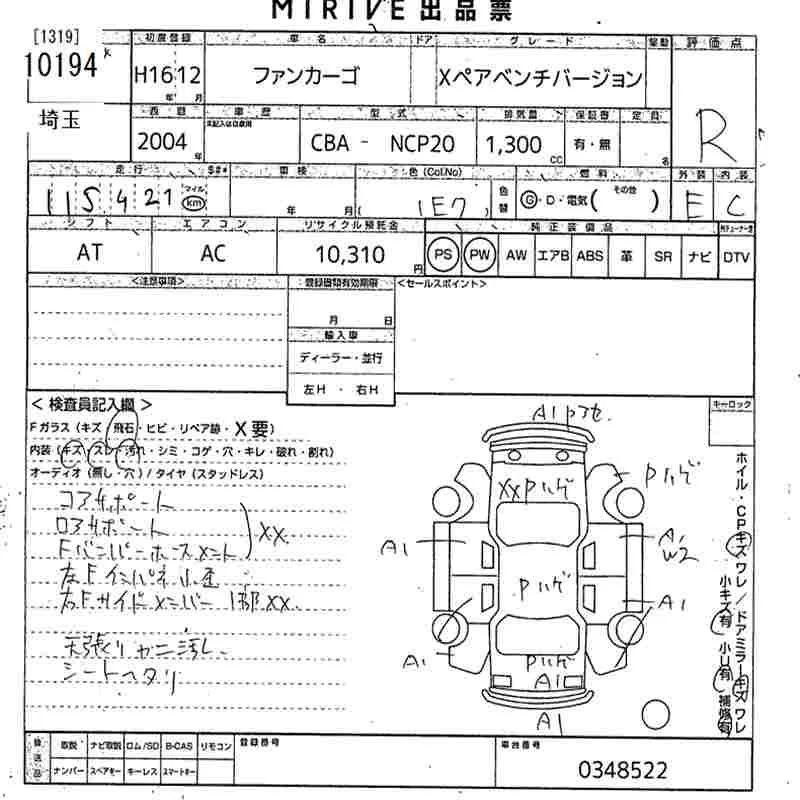 MIRIVE 出品票
[1319]
10194
埼玉
初度登録 車名 ドア グレード 駆動 評価点
H16 12 ファンカーゴ Xペアベンチバージョン R
年 月
西暦 車歴 型式 排気量 保証書 定員
未記入は自家用
2004年 CBA - NCP20 1,300cc 有・無 名
走行 車検 色(Col.No) 色替 燃料 外装 内装
115,421 マイル km 年 月 ( 1E7 ) G・D・電気( その他 ) E C
シフト エアコン リサイクル預託金 純正装備品
AT AC 10,310円 PS PW AW エアB ABS 革 SR ナビ DTV
<注意事項> 登録書類有効期限 <セールスポイント>
月 日
輸入車
ディーラー・並行
左H・右H
<検査員記入欄> キーロック
Fガラス(キズ・飛石・ヒビ・リペア跡・X要)
内装(キズ・スレ・汚れ・シミ・コゲ・穴・キレ・破れ・割れ)
オーディオ(無し・穴)/タイヤ(スタッドレス)
コアサポート
ロアサポート
Fバンパーホースメント XX
左Fインパネ小歪
右Fサイドメンバー 1部XX
天張りヤニ汚し
シートヘタリ
A1
XXPハゲ
Pハゲ
A1
A1
W2
Pハゲ
A1
A1
Pハゲ
A1
A1
ホイル・CPキズワレ/ドアミラーキズワレ
小キズ有 小U有 補修有
後送品 取説 ナビ取説 ロム/SD B-CAS リモコン 登録番号 車台番号
ナンバー スペアキー キーレス スマートキー
0348522